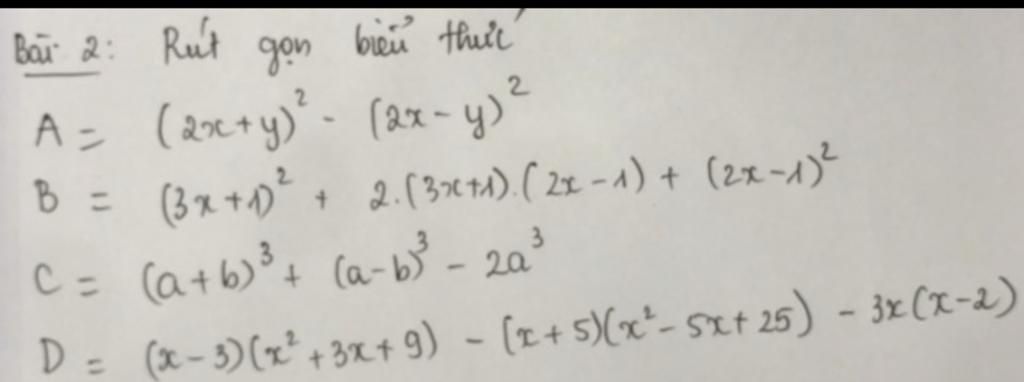 Bài 2: Rút gọn biểu thức
A = (2x+y)² - (2x-y)²
B = (3x+1)² + 2.(3x+1).(2x-1) + (2x-1)²
C = (a+b)³ + (a-b)³ - 2a³
D = (x-3)(x²+3x+9) - (x+5)(x²-5x+25) - 3x(x-2)